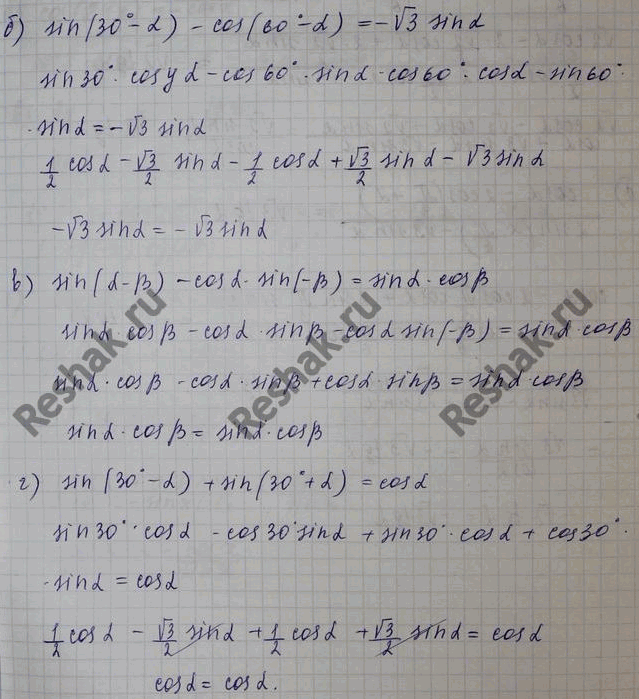 б) sin(30°-α) - cos(60°-α) = -√3 sinα
sin30°·cosyα - cos60°·sinα·cos60°·cosα - sin60°·
·sinα = -√3 sinα
1/2 cosα - √3/2 sinα - 1/2 cosα + √3/2 sinα - √3 sinα
-√3 sinα = -√3 sinα
в) sin(α-β) - cosα·sin(-β) = sinα·cosβ
sinα·cosβ - cosα·sinβ - cosα sin(-β) = sinα·cosβ
sinα·cosβ - cosα·sinβ + cosα·sinβ = sinα·cosβ
sinα·cosβ = sinα·cosβ
г) sin(30°-α) + sin(30°+α) = cosα
sin30°·cosα - cos30°sinα + sin30°·cosα + cos30°·
·sinα = cosα
1/2 cosα - √3/2 sinα + 1/2 cosα + √3/2 sinα = cosα
cosα = cosα.
Reshak.ru
Reshak.ru
Reshak.ru